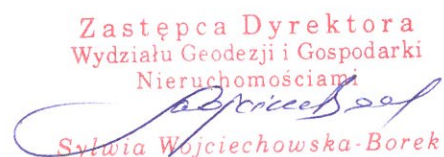 Zastępca Dyrektora
Wydziału Geodezji i Gospodarki
Nieruchomościami
Sylwia Wojciechowska-Borek